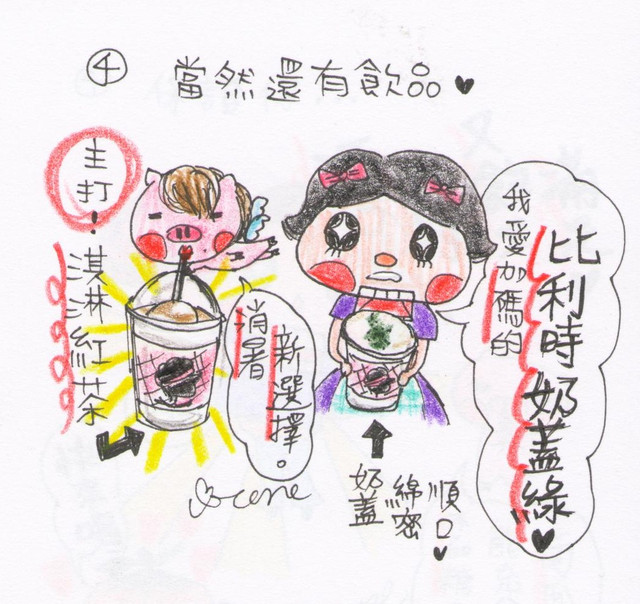 ④ 當然還有飲品♥
主打!
淇淋紅茶
消暑
新選擇。
我愛加碼的
比利時奶蓋綠♥
奶蓋
綿密
順口♥